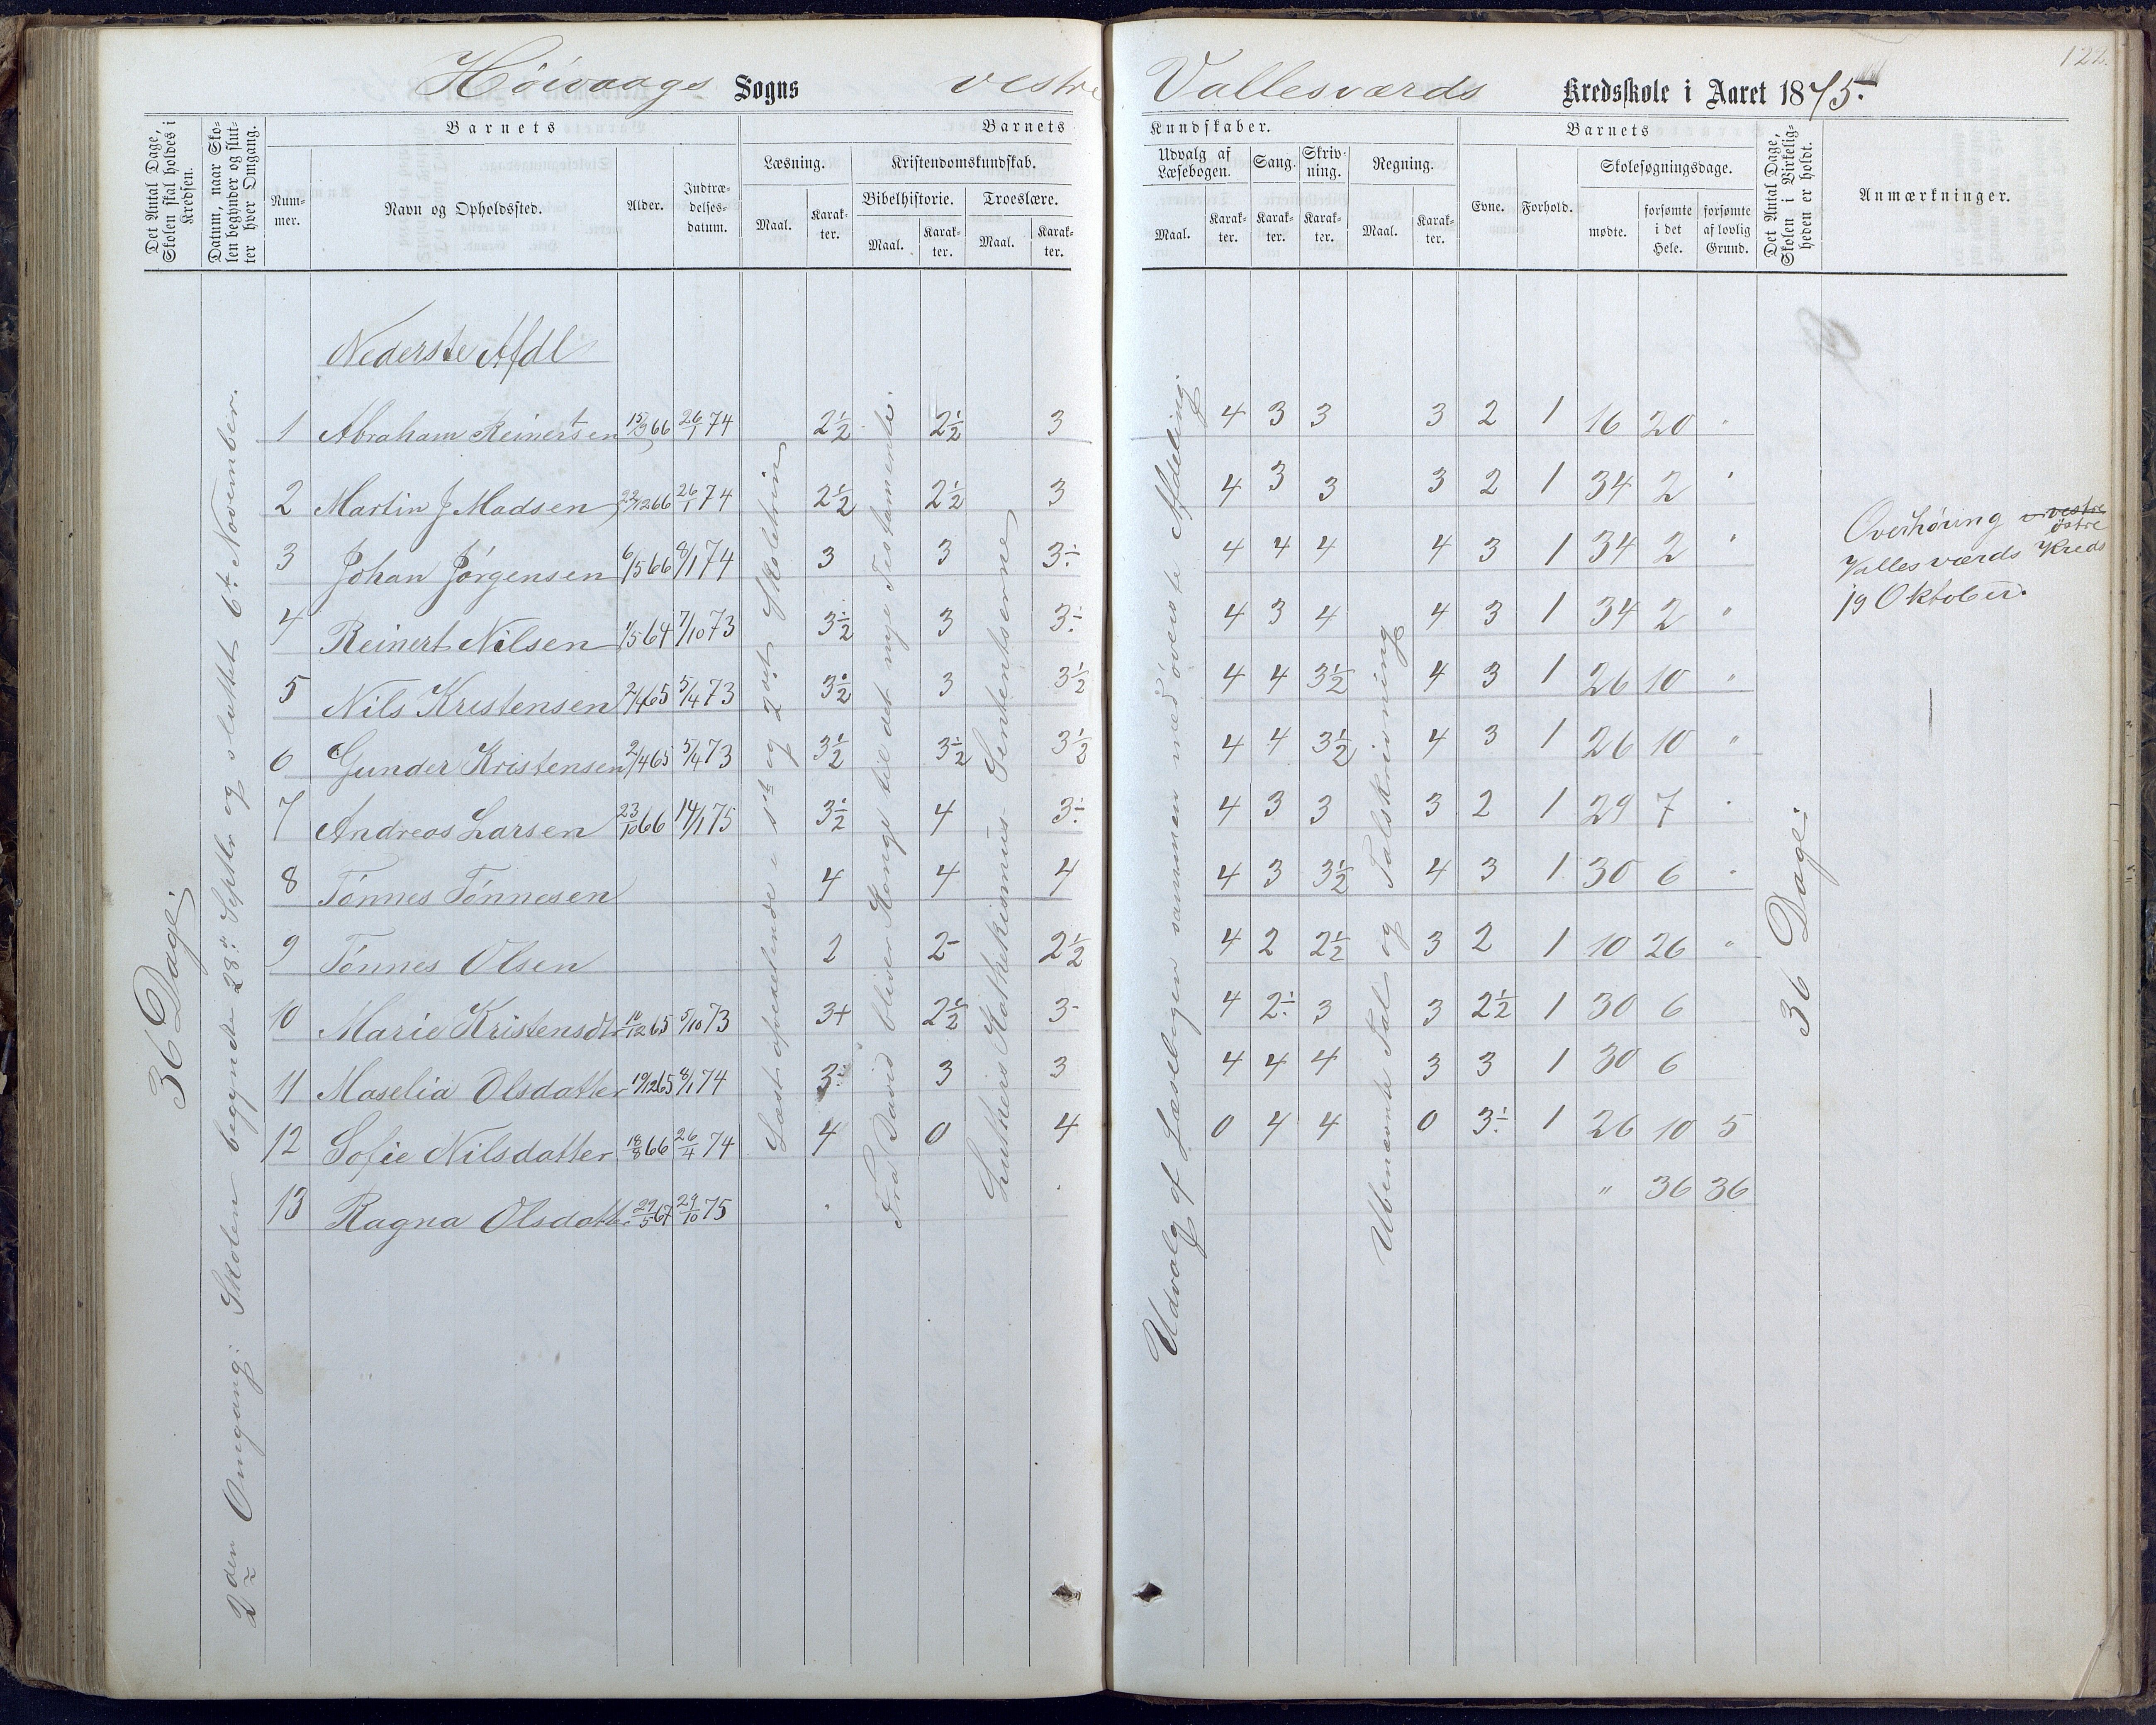 122.
Høivaags Sogns vestre Vallesværds Kredsskole i Aaret 1875.
Det Antal Dage, Skolen skal holdes i Kredsen.
Datum, naar Skolen begynder og slutter hver Omgang.
Barnets
Nummer.
Navn og Opholdssted.
Alder.
Indtrædelsesdatum.
Barnets
Læsning.
Maal.
Karakter.
Kristendomskundskab.
Bibelhistorie.
Maal.
Karakter.
Troeslære.
Maal.
Karakter.
Kundskaber.
Udvalg af Læsebogen.
Maal.
Karakter.
Sang.
Karakter.
Skrivning.
Karakter.
Regning.
Maal.
Karakter.
Barnets
Evne.
Forhold.
Skolesøgningsdage.
mødte.
forsømte i det Hele.
forsømte af lovlig Grund.
Det Antal Dage, Skolen i Virkeligheden er holdt.
Anmærkninger.
36 Dage.
2den Omgang: Skolen begyndte 28de Septbr og sluttet 6te November.
Nederste Afdl
1 Abraham Reinertsen 15/9 66 26/1 74 2½ 2½ 3 4 3 3 3 2 1 16 20 "
2 Martin J Madsen 22/12 66 26/1 74 2½ 2½ 3 4 3 3 3 2 1 34 2 "
3 Johan Jørgensen 6/5 66 8/1 74 3 3 3÷ 4 4 4 4 3 1 34 2 "
4 Reinert Nilsen 1/5 64 7/10 73 3½ 3 3÷ 4 3 4 4 3 1 34 2 "
5 Nils Kristensen 2/4 65 5/4 73 3½ 3 3½ 4 4 3½ 4 3 1 26 10 "
6 Gunder Kristensen 2/4 65 5/4 73 3½ 3½ 3½ 4 4 3½ 4 3 1 26 10 "
7 Andreas Larsen 23/10 66 14/1 75 3½ 4 3÷ 4 3 3 3 2 1 29 7 "
8 Tønnes Tønnesen 4 4 4 4 3 3½ 4 3 1 30 6 "
9 Tønnes Olsen 2 2- 2½ 4 2 2½ 3 2 1 10 26 "
10 Marie Kristensdtr 10/12 65 5/10 73 3+ 2½ 3- 4 2÷ 3 3 2½ 1 30 6
11 Maselia Olsdatter 19/12 65 8/1 74 3÷ 3 3 4 4 4 3 3 1 30 6
12 Sofie Nilsdatter 18/8 66 26/4 74 4 0 4 0 4 4 0 3÷ 1 26 10 5
13 Ragna Olsdatter 29/5 67 29/10 75 " 36 36
Læst afvexlende i 1st og 2det Skoletrin
Fra David bliver Konge til det nye Testamente.
Luthers Katekismus- Sententserne
Udvalg af Læsebogen sammen med øverste Afdeling
Ubenævnte Tal og Talskrivning
36 Dage.
Overhøring i vestre
østre
Vallesværds Kreds
19 Oktober.